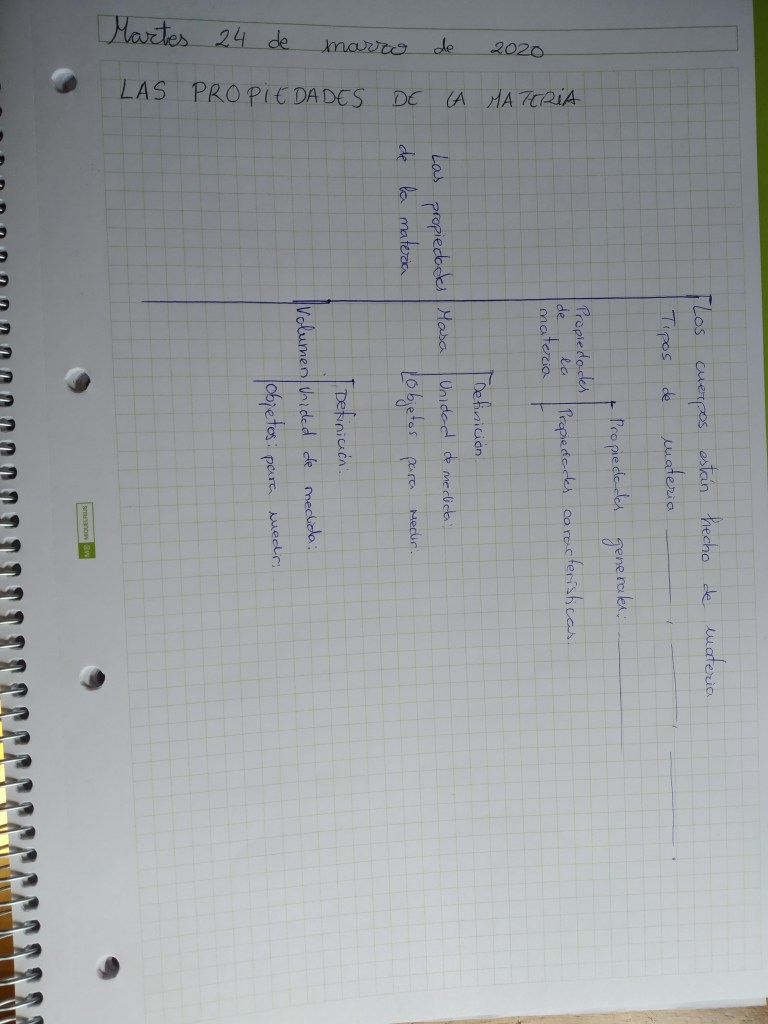 Martes 24 de marzo de 2020
LAS PROPIEDADES DE LA MATERIA
Las propiedades
de la materia
Los cuerpos están hecho de materia
Tipos de materia ______, ______, ______.
Propiedades
de la
materia
Propiedades generales: ______
Propiedades características.
Masa
Definición
Unidad de medida:
Objetos para medir:
Volumen
Definición:
Unidad de medida:
Objetos: para medir: